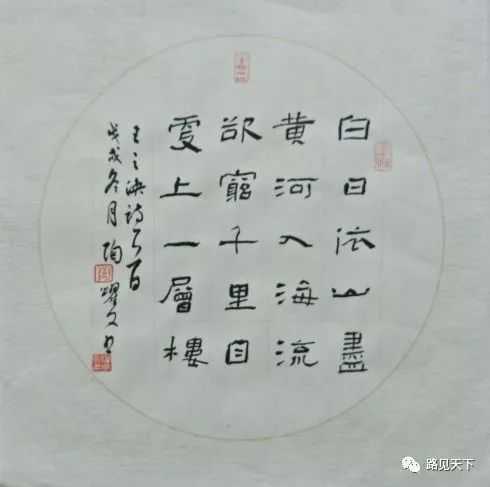 白日依山盡
黄河入海流
欲窮千里目
更上一層樓
王之涣诗一首
戊戌冬月陶耀文书
路见天下